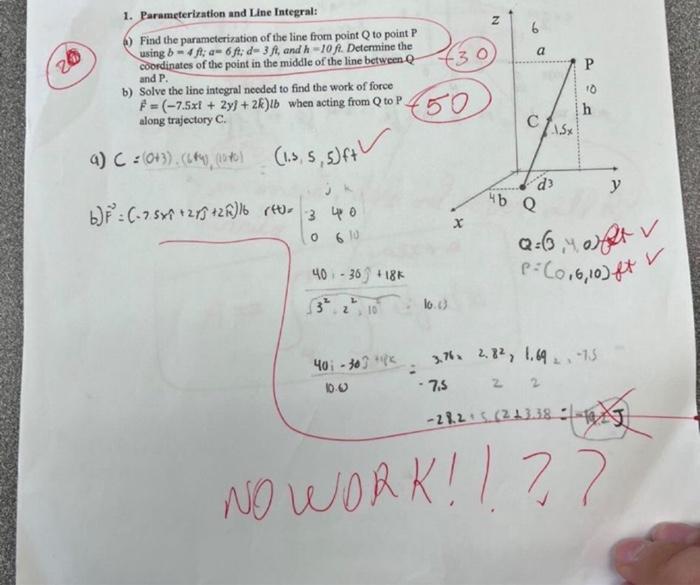 1. Parameterization and Line Integral:
a) Find the parameterization of the line from point Q to point P
using b = 4 ft; a= 6 ft; d= 3 ft, and h =10 ft. Determine the
coordinates of the point in the middle of the line between Q
and P.
b) Solve the line integral needed to find the work of force
F⃗ = (−7.5xî + 2yĵ + 2k̂)lb when acting from Q to P
along trajectory C.
20
-30
-50
z
6
a
P
10
h
C
1.5x
d3
y
4b Q
x
Q=(3,4,0)ft ✓
P=(0,6,10)ft ✓
a) C = (0+3), (6+4), (10+0) (1.5, 5, 5)ft ✓
b) F⃗ = (-7.5xî + 2yĵ + 2k̂)lb r(t)=
3 4 0
0 6 10
40i - 30j + 18k
√3² 2² 10²
40i - 30j
= 3.76x 2.82, 1.69
-7.5 2 2
NO WORK!!??